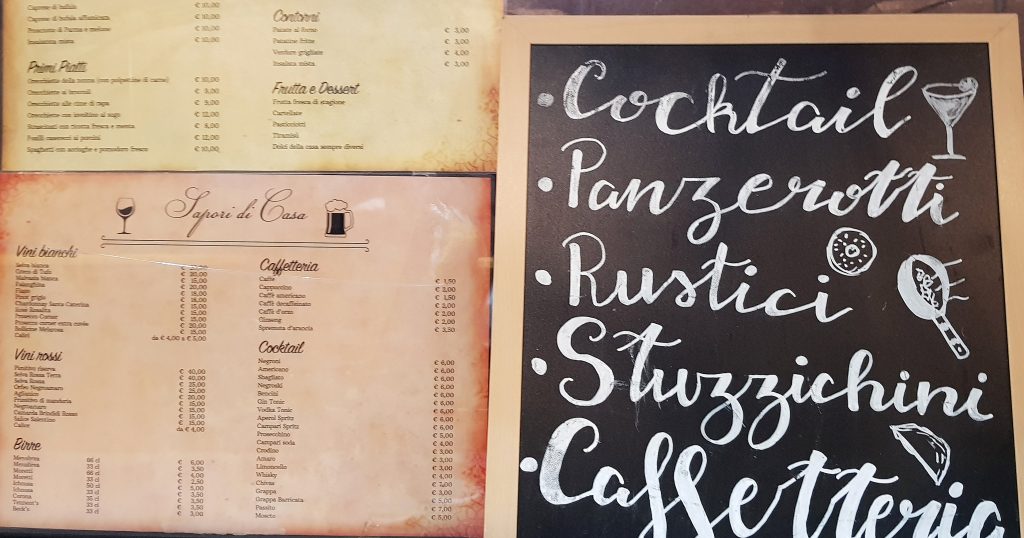 Caprese di bufala € 10,00
Caprese di bufala affumicata € 10,00
Prosciutto di Parma e melone € 10,00
Insalatona mista € 10,00
Primi Piatti
Orecchiette della nonna (con polpettine di carne) € 10,00
Orecchiette ai broccoli
Orecchiette alle cime di rapa € 9,00
Orecchiette con involtino al sugo € 12,00
Strascinati con ricotta fresca e menta € 8,00
Fusilli casereeci ai porcini € 12,00
Spaghetti con acciughe e pomodoro fresco € 10,00
Contorni
Patate al forno € 3,00
Patatine fritte € 3,00
Verdure grigliate € 4,00
Insalata mista € 3,00
Frutta e Dessert
Frutta fresca di stagione
Cartellate
Pasticciotti
Tiramisù
Dolci della casa sempre diversi
Sapori di Casa
Vini bianchi
Selva bianca
Greco di Tufo € 20,00
Malvasia bianca € 15,00
Falanghina € 20,00
Fiano € 15,00
Pinot grigio € 18,00
Chardonnay Santa Caterina € 15,00
Rosé Rosalita € 15,00
Prosecco Corner € 15,00
Prosecco corner extra cuvée € 20,00
Bollicine Melarosa € 15,00
Calici da € 4,00 a € 5,00
Vini rossi
Primitivo riserva € 40,00
Selva Rossa Terra € 40,00
Selva Rossa € 25,00
Orfeo Negroamaro € 25,00
Aglianico € 20,00
Primitivo di manduria € 15,00
Negroamaro € 15,00
Cantarda Brindisi Rosso € 15,00
Salice Salentino € 15,00
Calice da € 4,00
Birre
Menabrea 66 cl € 6,00
Menabrea 33 cl € 3,50
Moretti 66 cl € 4,00
Moretti 33 cl € 2,50
Ichnusa 50 cl € 5,00
Ichnusa 33 cl € 3,50
Corona 33 cl € 3,50
Tennent's 33 cl € 3,50
Beck's 33 cl € 3,00
Caffetteria
Caffè € 1,50
Cappuccino € 2,00
Caffè americano € 1,50
Caffè decaffeinato € 2,00
Caffè d'orzo € 2,00
Ginseng € 2,00
Spremuta d'arancia € 3,50
Cocktail
Negroni € 6,00
Americano € 6,00
Sbagliato € 6,00
Negroski € 6,00
Bencini € 6,00
Gin Tonic € 6,00
Vodka Tonic € 6,00
Aperol Spritz € 6,00
Campari Spritz € 6,00
Prosecchino € 5,00
Campari soda € 4,00
Crodino € 3,00
Amaro € 3,00
Limoncello € 3,00
Whisky € 4,00
Chivas
Grappa € 3,00
Grappa Barricata € 5,00
Passito € 7,00
Moscto € 5,00
• Cocktail
• Panzerotti
• Rustici
• Stuzzichini
• Caffetteria